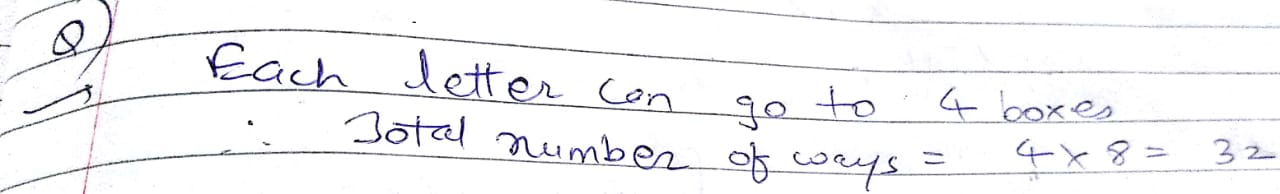 Q)
→ Each letter can go to 4 boxes
∴ Total number of ways = 4 x 8 = 32